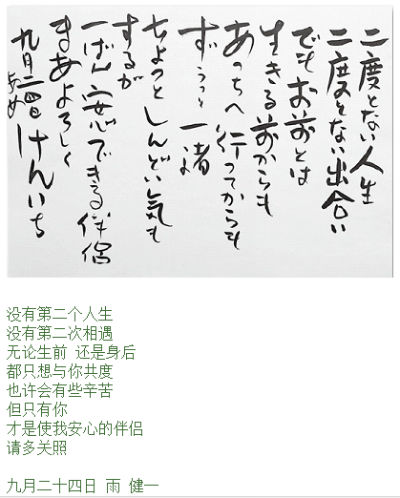 二度とない人生
二度とない出合い
でもお前とは
生きる前からも
あっちへ行ってからも
ずうっと一緒
ちょっとしんどい気も
するが
一ばん安心できる伴侶
まあよろしく
九月 けんいち
あめ
没有第二个人生
没有第二次相遇
无论生前 还是身后
都只想与你共度
也许会有些辛苦
但只有你
才是使我安心的伴侣
请多关照
九月二十四日 雨 健一